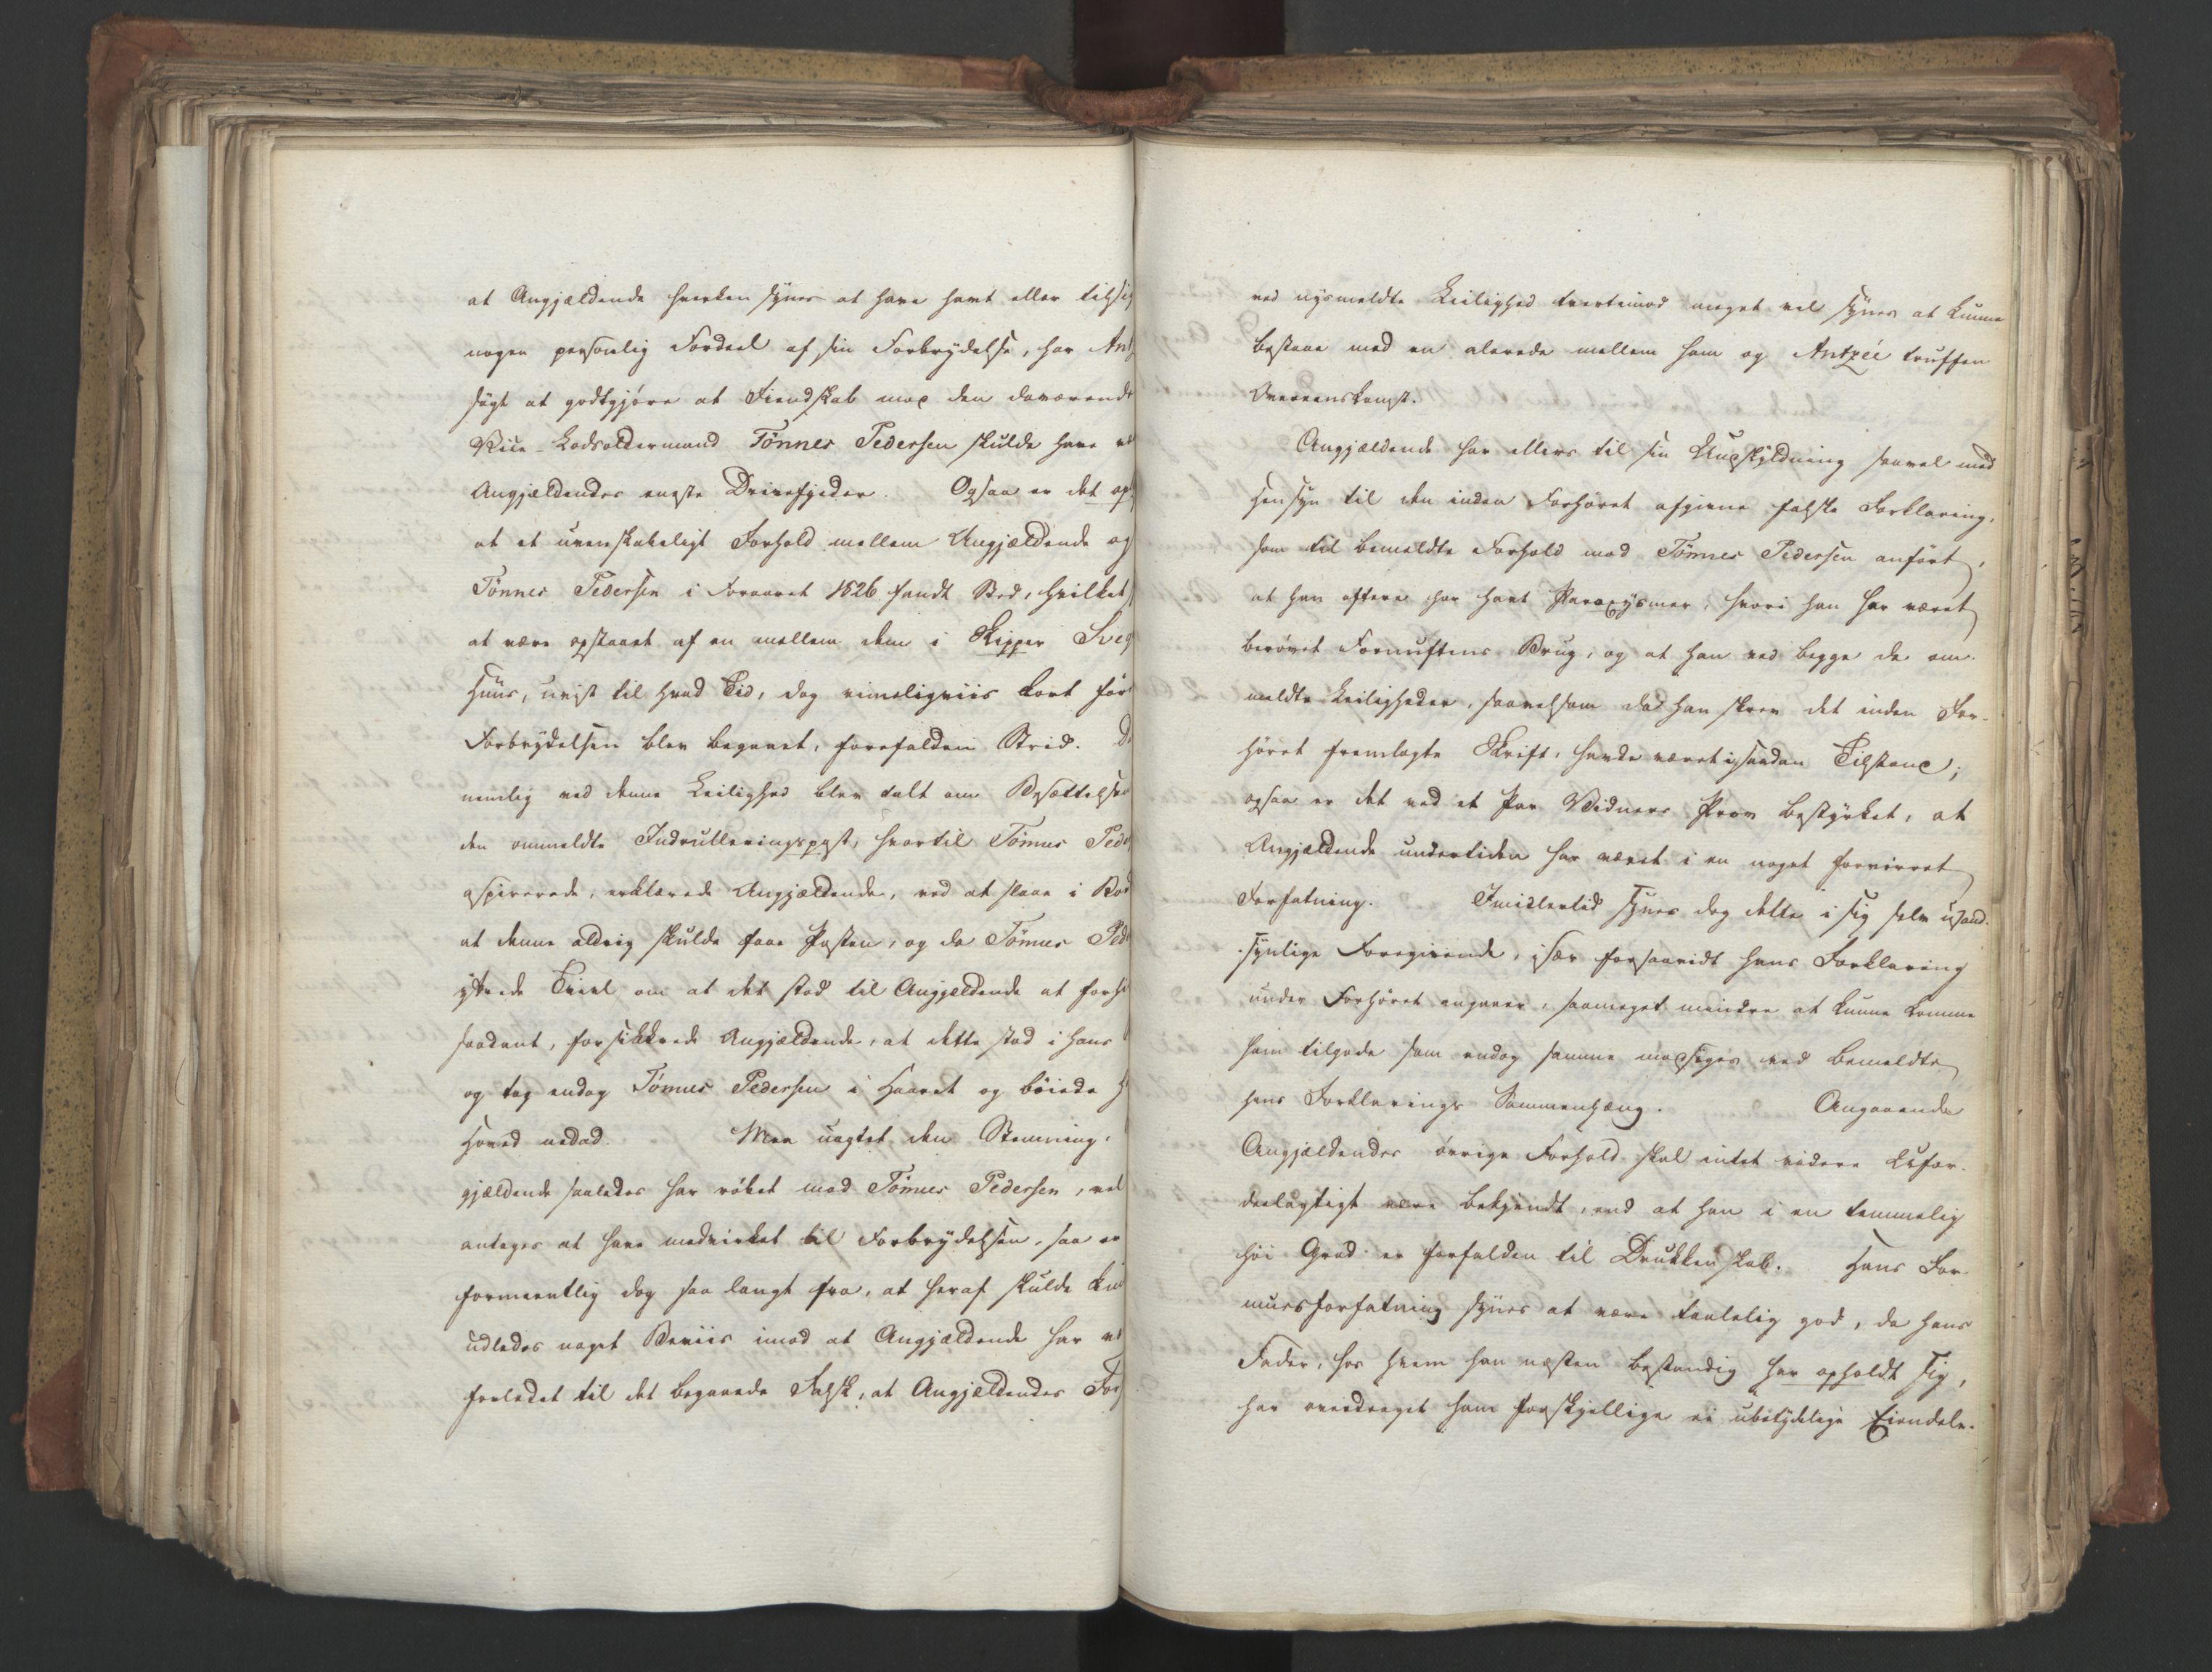 at Angjældende hverken synes at have havt eller tilsig
nogen personlig Fordeel af sin Forbrydelse, har Ant
søgt at godtgjøre at Fiendskab mod den daværende
Vice-Lodsoldermand Tønnes Pedersen skulde have
Angjældendes eneste Drivefjeder. Ogsaa er det op
at et uvenskabeligt Forhold mellem Angjældende og
Tønnes Pedersen i Foraaret 1826 fandt Sted, hvilket
at være opstaaet af en mellem dem i Skipper Sveg
Huus, uvist til hvad Tid, dog rimeligviis kort før
Forbrydelsen blev begaaet, forefalden Strid. D
nemlig ved denne Leilighed blev talt om Besættelsen
den ommeldte Indrulleringspost, hvortil Tønnes Ped
aspirerede, erklærede Angjældende, ved at slaae i Bord
at denne aldrig skulde faae Posten, og da Tønnes Ped
yttrede Tvivl om at det stod til Angjældende at forh
saadant, forsikkrede Angjældende, at dette stod i hans
og tog endog Tønnes Pedersen i Haaret og bøiede h
Hoved nedad. Men uagtet den Stemning,
gjældende saaledes har røbet mod Tønnes Pedersen, vel
antages at have medvirket til Forbrydelsen, saa er
formeentlig dog saa langt fra, at heraf skulde kun
udledes noget Beviis imod at Angjældende har
forledet til det begaaede Falsk, at Angjældendes For
ved nysmeldte Leilighed tvertimod meget vel synes at kunne
bestaae med en alerede mellem ham og Antzée truffen
Overeenskomst.
Angjældende har ellers til sin Undskyldning saavel med
Hensyn til den inden Forhøret afgivne falske Forklaring,
som til bemeldte Forhold mod Tønnes Pedersen anført,
at han oftere har havt Paroxysmer, hvori han har været
berøvet Fornuftens Brug, og at han ved begge de om-
meldte Leiligheder, saavelsom da han skrev det inden For-
høret fremlagte Skrift, havde været i saadan Tilstand;
ogsaa er det ved et Par Vidners Prov bestyrket, at
Angjældende undertiden har været i en noget forvirret
Forfatning. Imidlertid synes dog dette i sig selv usand-
synlige Foregivende, især forsaavidt hans Forklaring
under Forhøret angaaer, saameget mindre at kunne komme
ham tilgode som endog samme modsiges ved bemeldte
hans Forklarings Sammenhæng. Angaaende
Angjældendes øvrige Forhold skal intet videre Ufor-
deelagtigt være bekjendt, end at han i en temmelig
høi Grad er forfalden til Drukkenskab. Hans For-
muesforfatning synes at være taalelig god, da hans
Fader, hos hvem han næsten bestandig har opholdt sig,
har overdraget ham forskjellige ei ubetydelige Eiendele.